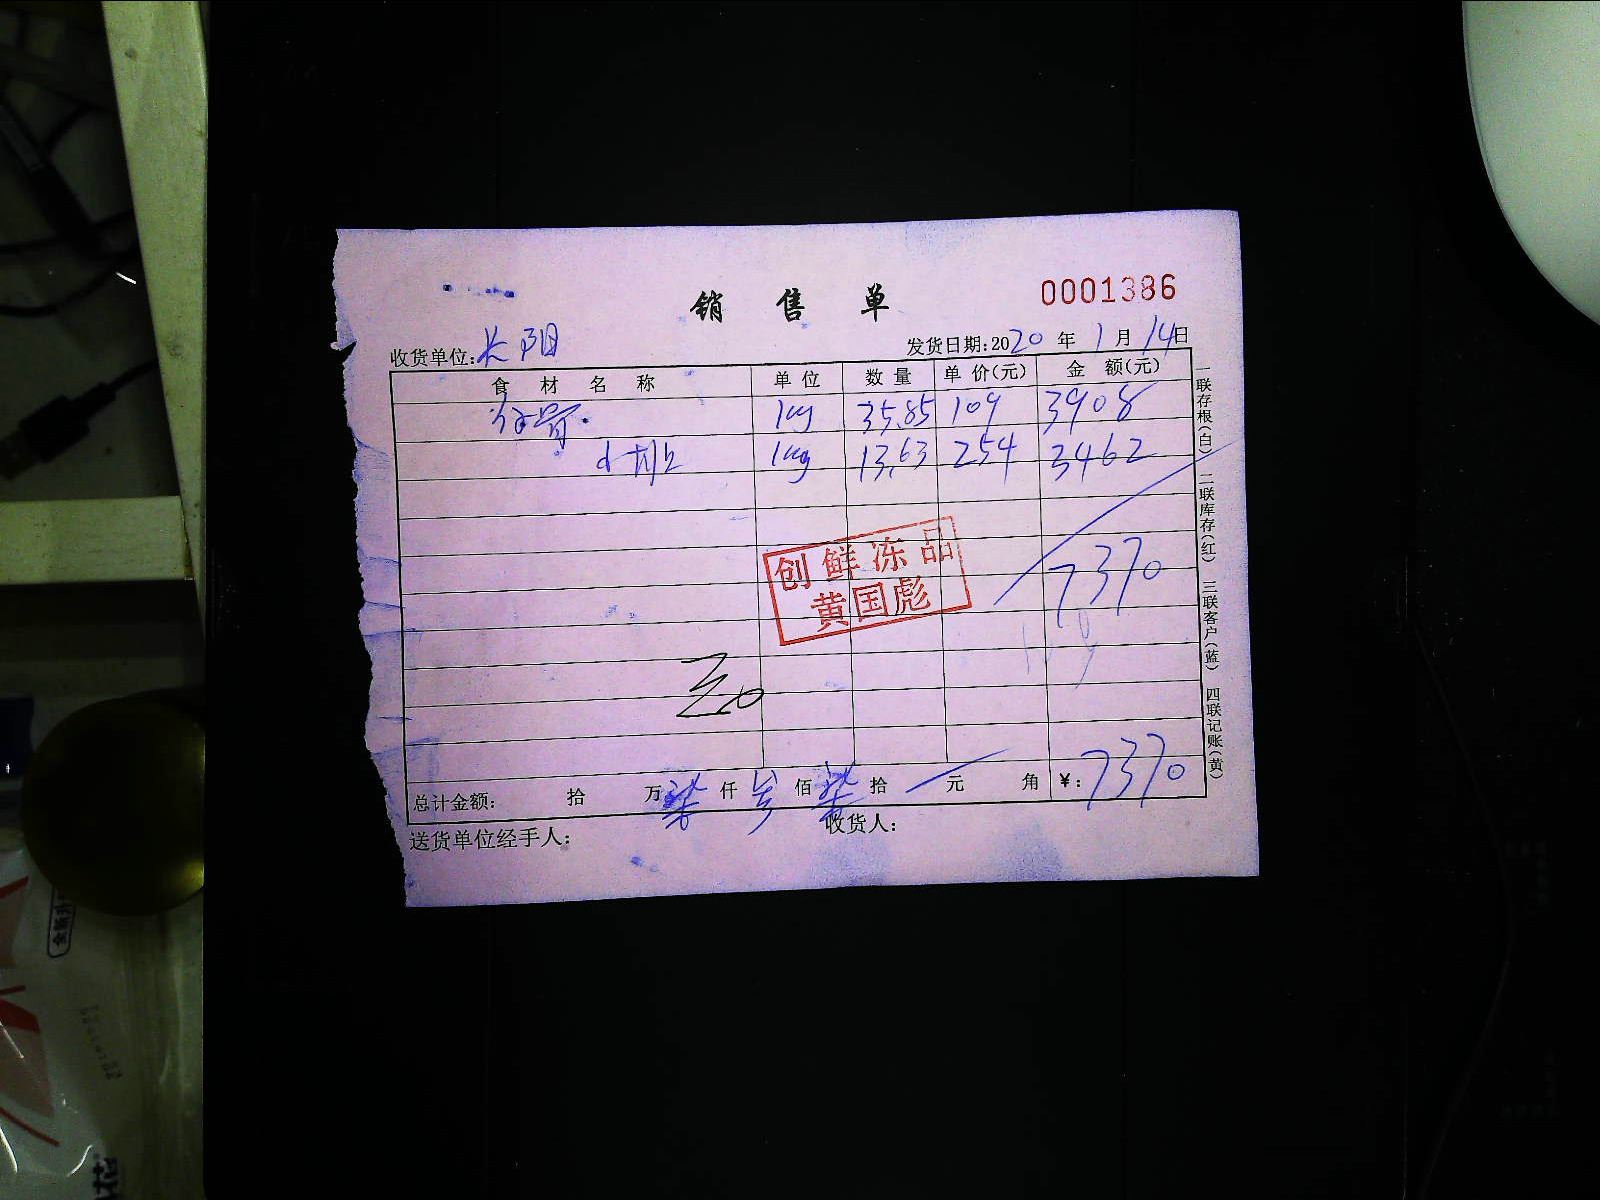 销售单
0001386
收货单位:长阳
发货日期:2020年1月14日
食材名称 单位 数量 单价(元) 金额(元)
仔骨 1kg 35.85 109 3908
1kg 13.63 254 3462
创鲜冻品
黄国彪
7370
总计金额: 拾 万柒仟叁佰柒拾 元 角 ¥:7370
送货单位经手人: 收货人:
一联存根(白) 二联库存(红) 三联客户(蓝) 四联记账(黄)